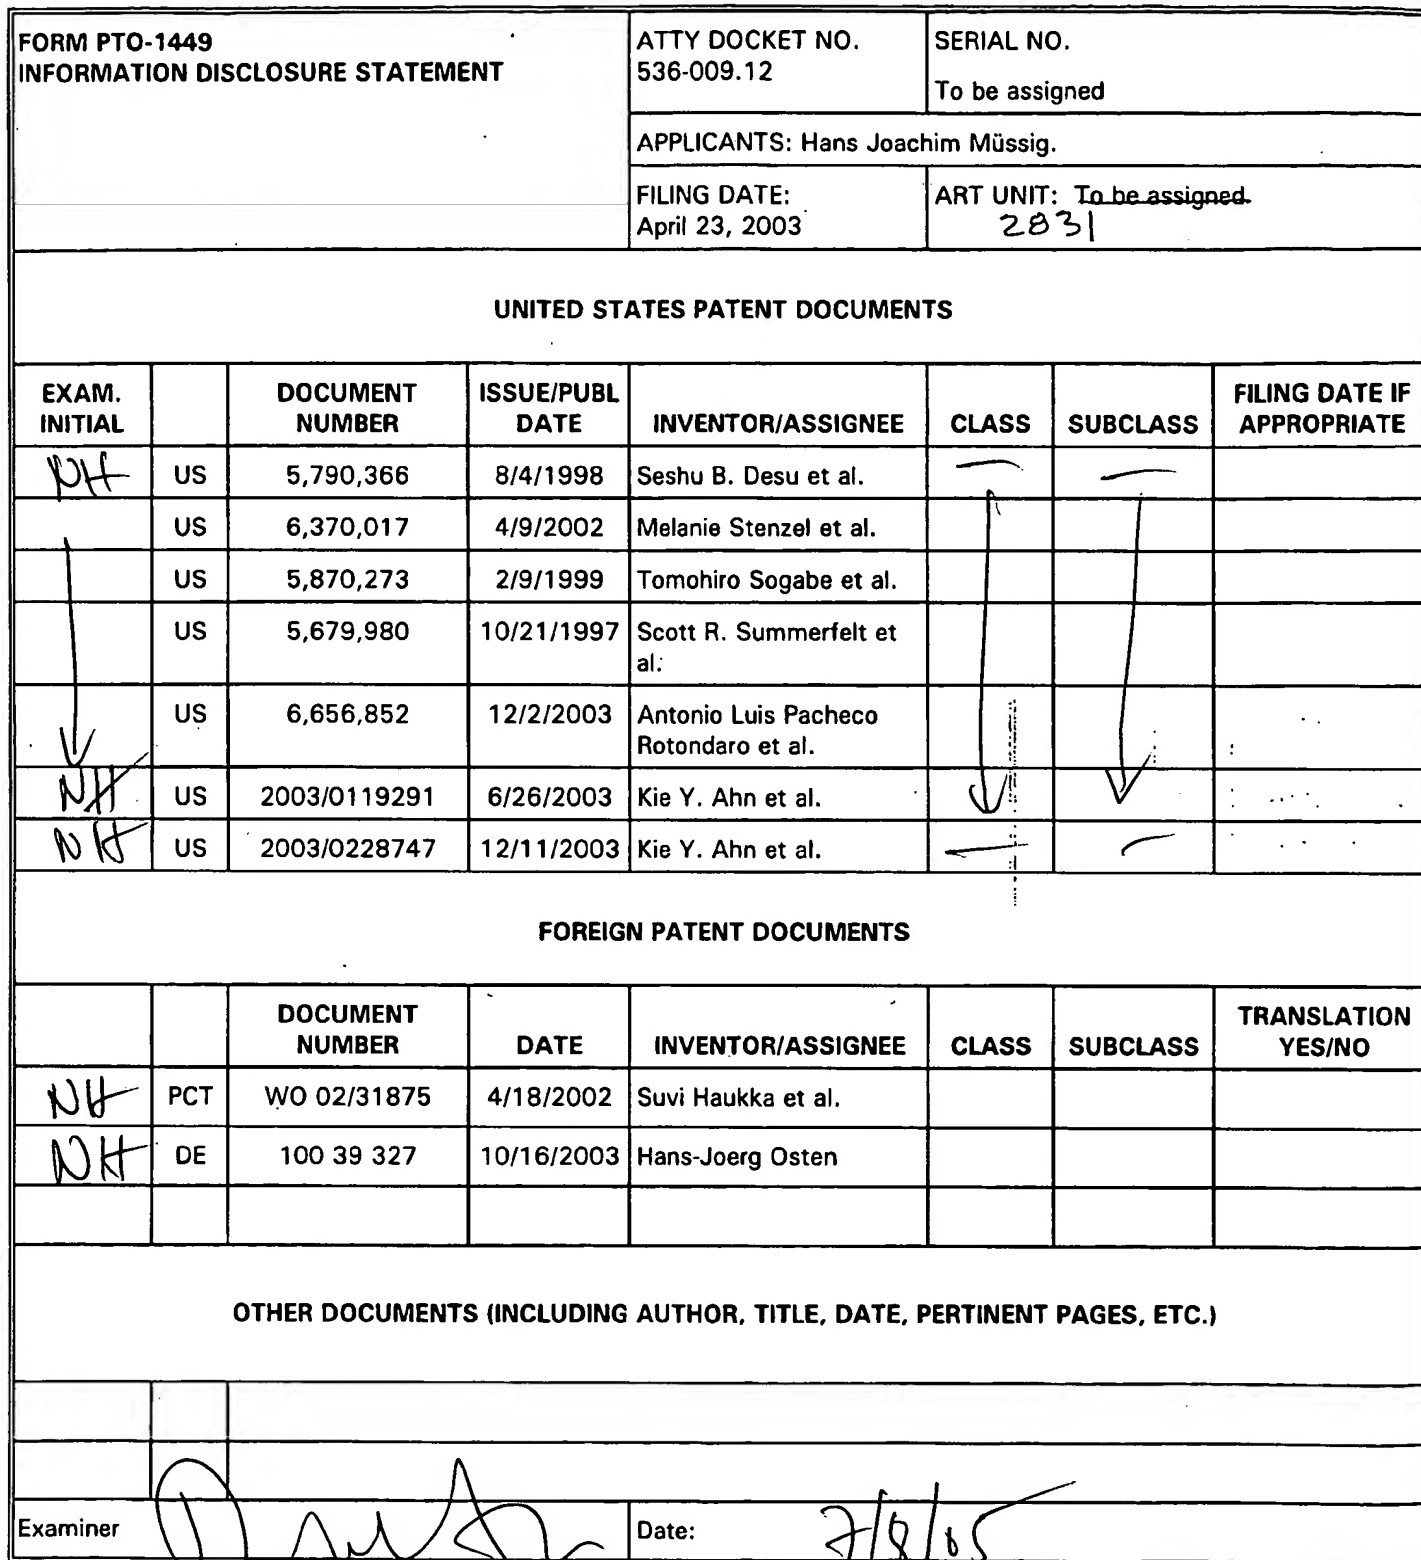 FORM PTO-1449
INFORMATION DISCLOSURE STATEMENT
ATTY DOCKET NO.
536-009.12
SERIAL NO.
To be assigned
APPLICANTS: Hans Joachim Müssig.
FILING DATE:
April 23, 2003
ART UNIT: To be assigned
2831
UNITED STATES PATENT DOCUMENTS
EXAM. INITIAL DOCUMENT NUMBER ISSUE/PUBL DATE INVENTOR/ASSIGNEE CLASS SUBCLASS FILING DATE IF APPROPRIATE
NH US 5,790,366 8/4/1998 Seshu B. Desu et al.
US 6,370,017 4/9/2002 Melanie Stenzel et al.
US 5,870,273 2/9/1999 Tomohiro Sogabe et al.
US 5,679,980 10/21/1997 Scott R. Summerfelt et
al.
US 6,656,852 12/2/2003 Antonio Luis Pacheco
Rotondaro et al.
NH US 2003/0119291 6/26/2003 Kie Y. Ahn et al.
NH US 2003/0228747 12/11/2003 Kie Y. Ahn et al.
FOREIGN PATENT DOCUMENTS
DOCUMENT NUMBER DATE INVENTOR/ASSIGNEE CLASS SUBCLASS TRANSLATION YES/NO
NH PCT WO 02/31875 4/18/2002 Suvi Haukka et al.
NH DE 100 39 327 10/16/2003 Hans-Joerg Osten
OTHER DOCUMENTS (INCLUDING AUTHOR, TITLE, DATE, PERTINENT PAGES, ETC.)
Examiner
Date: 7/8/05